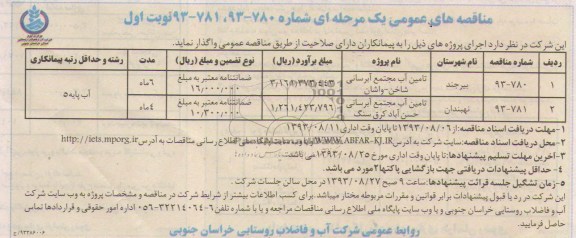 مناقصه های عمومی یک مرحله ای شماره ۷۸۰-۹۳، ۷۸۱-۹۳ نوبت اول
این شرکت در نظر دارد اجرای پروژه های ذیل را به پیمانکاران دارای صلاحیت از طریق مناقصه عمومی واگذار نماید.
ردیف شماره مناقصه نام شهرستان نام پروژه مبلغ برآورد (ریال) نوع تضمین و مبلغ (ریال) مدت رشته و حداقل رتبه پیمانکاری
۱ ۹۳-۷۸۰ بیرجند تامین آب مجتمع آبرسانی شاخن-واشان ضمانتنامه معتبر به مبلغ ۱۶/۰۰۰/۰۰۰ ۶ماه آب پایه۵
۲ ۹۳-۷۸۱ نهبندان تامین آب مجتمع آبرسانی حسن آباد کرق سنگ ۱/۲۶۱/۴۲۳/۷۹۶ ضمانتنامه معتبر به مبلغ ۱۰/۳۰۰/۰۰۰ ۴ماه
۱-مهلت دریافت اسناد مناقصه: از ۱۳۹۳/۰۸/۰۶ تا پایان وقت اداری ۱۳۹۳/۰۸/۱۱
۲-محل دریافت اسناد مناقصه: سایت شرکت به آدرس WWW.ABFAR-KJ.IR پایگاه ملی اطلاع رسانی مناقصات به آدرس http://iets.mporg.ir
۳-آخرین مهلت تسلیم پیشنهادها: تا پایان وقت اداری مورخ ۱۳۹۳/۰۸/۲۵ می باشد.
۴- حداقل پیشنهادات دریافتی جهت بازگشایی پاکتها ۲ مورد می باشد.
۵-زمان تشکیل جلسه قرائت پیشنهادها: ساعت ۹ صبح ۱۳۹۳/۰۸/۲۷ در محل سالن جلسات شرکت.
این شرکت در رد یا قبول پیشنهادات برابر قوانین و مقررات مربوطه مختار میباشد. برای کسب اطلاعات بیشتر از شرایط شرکت در مناقصه و مشخصات پروژه به وب سایت شرکت
آب و فاضلاب روستایی خراسان جنوبی و یا وب سایت پایگاه ملی اطلاع رسانی مناقصات مراجعه و یا با شماره تلفن ۶-۳۲۲۱۴۰۶۴-۰۵۶ اداره امور حقوقی و قراردادها تماس
حاصل فرمایید.
روابط عمومی شرکت آب و فاضلاب روستایی خراسان جنوبی